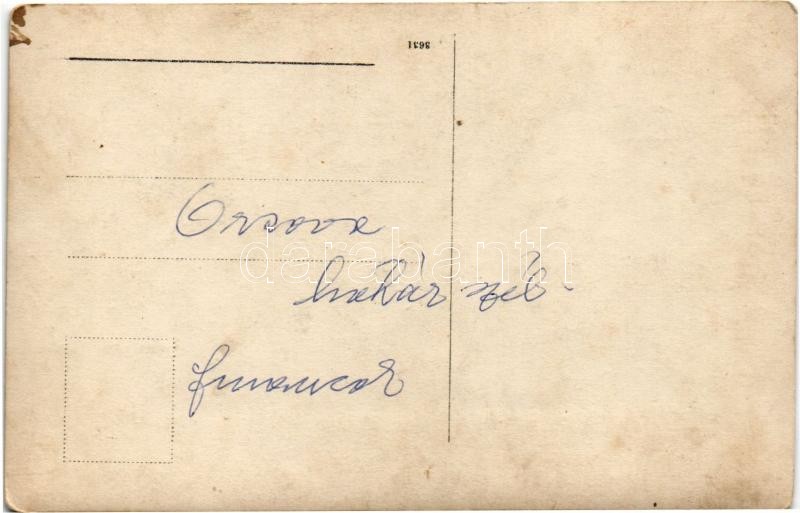 3631
Orsova
határ szél.
financok
darabanth